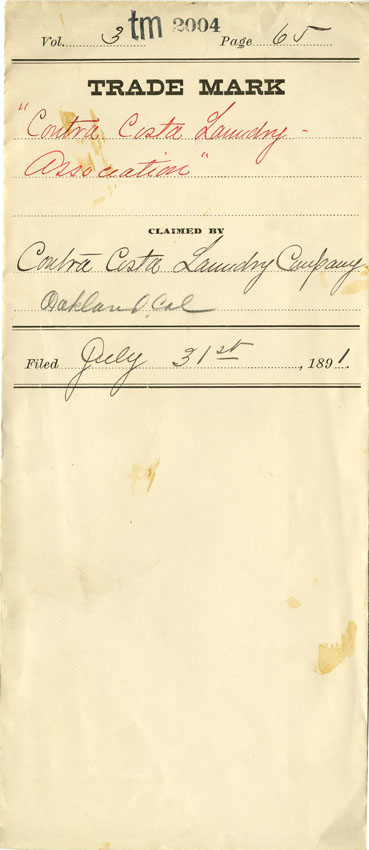 tm 2004
Vol. 3 Page 65
TRADE MARK
"Contra Costa Laundry -
Association"
CLAIMED BY
Contra Costa Laundry Company
Oakland, Cal
Filed July 31st, 1891.